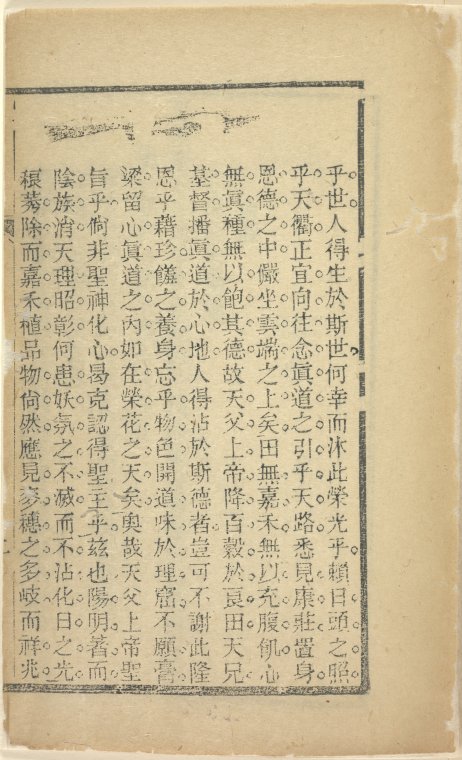 乎世人得生於斯世何幸而沐此榮光乎賴日頭之照
乎天衢正宜向往念眞道之引乎天路悉見康莊置身
恩德之中儼坐雲端之上矣田無嘉禾無以充腹飢心
無眞種無以飽其德故天父上帝降百穀於良田天兄
基督播眞道於心地人得沾於斯德者豈可不謝此隆
恩乎藉珍饈之養身忘乎物色開道味於理窟不願膏
粱留心眞道之内如在榮花之天矣奥哉天父上帝聖
旨乎倘非聖神化心曷克認得聖主乎茲也陽明著而
陰族消天理昭彰何患妖氛之不滅而不沾化日之光
稂莠除而嘉禾植品物尙然應見麥穗之多岐而祥兆